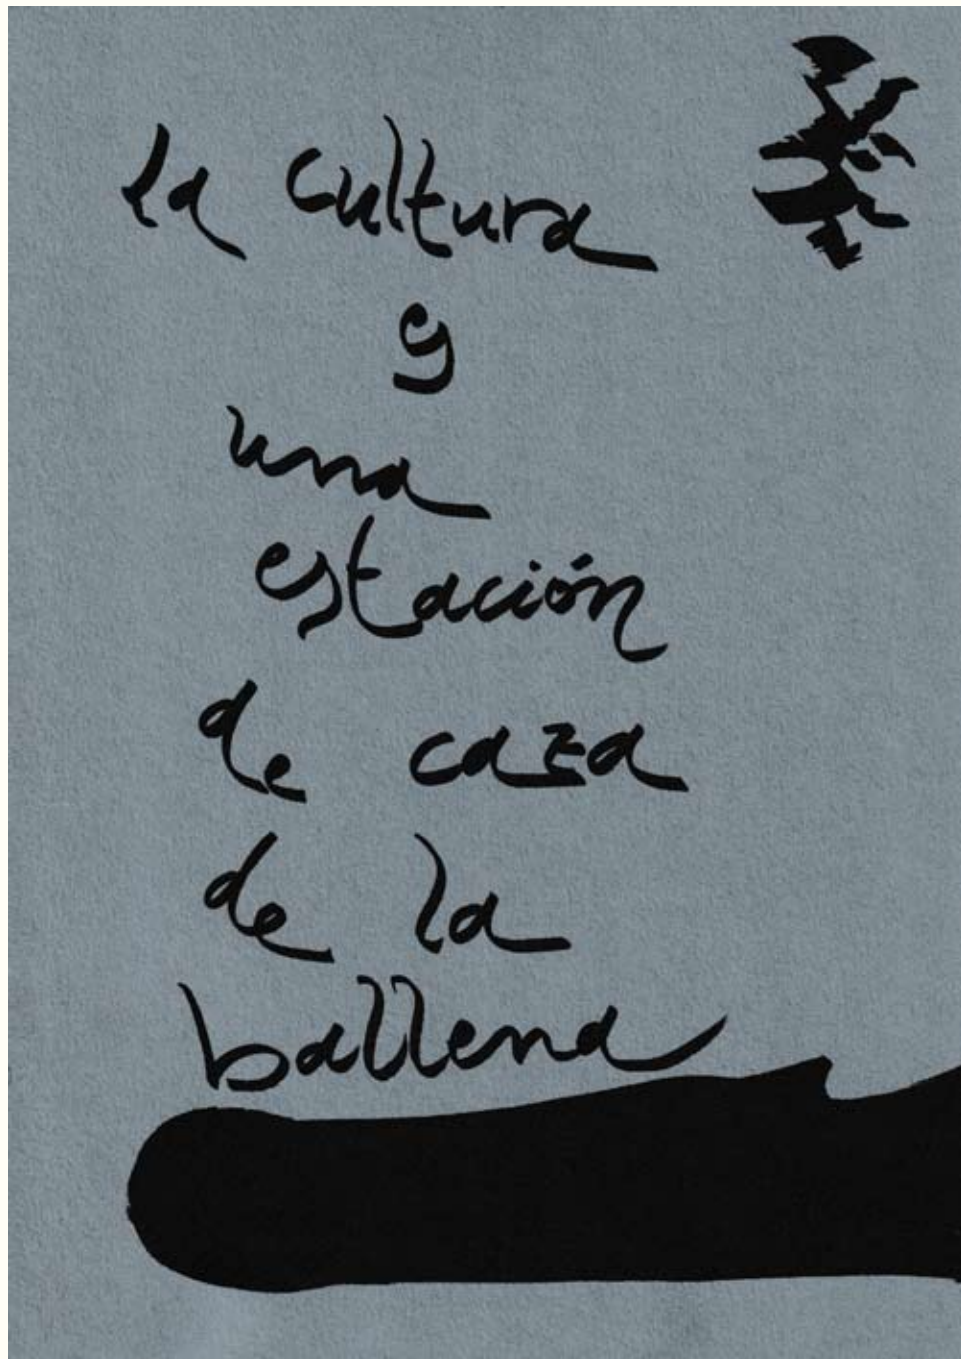 la cultura
y
una
estación
de caza
de la
ballena